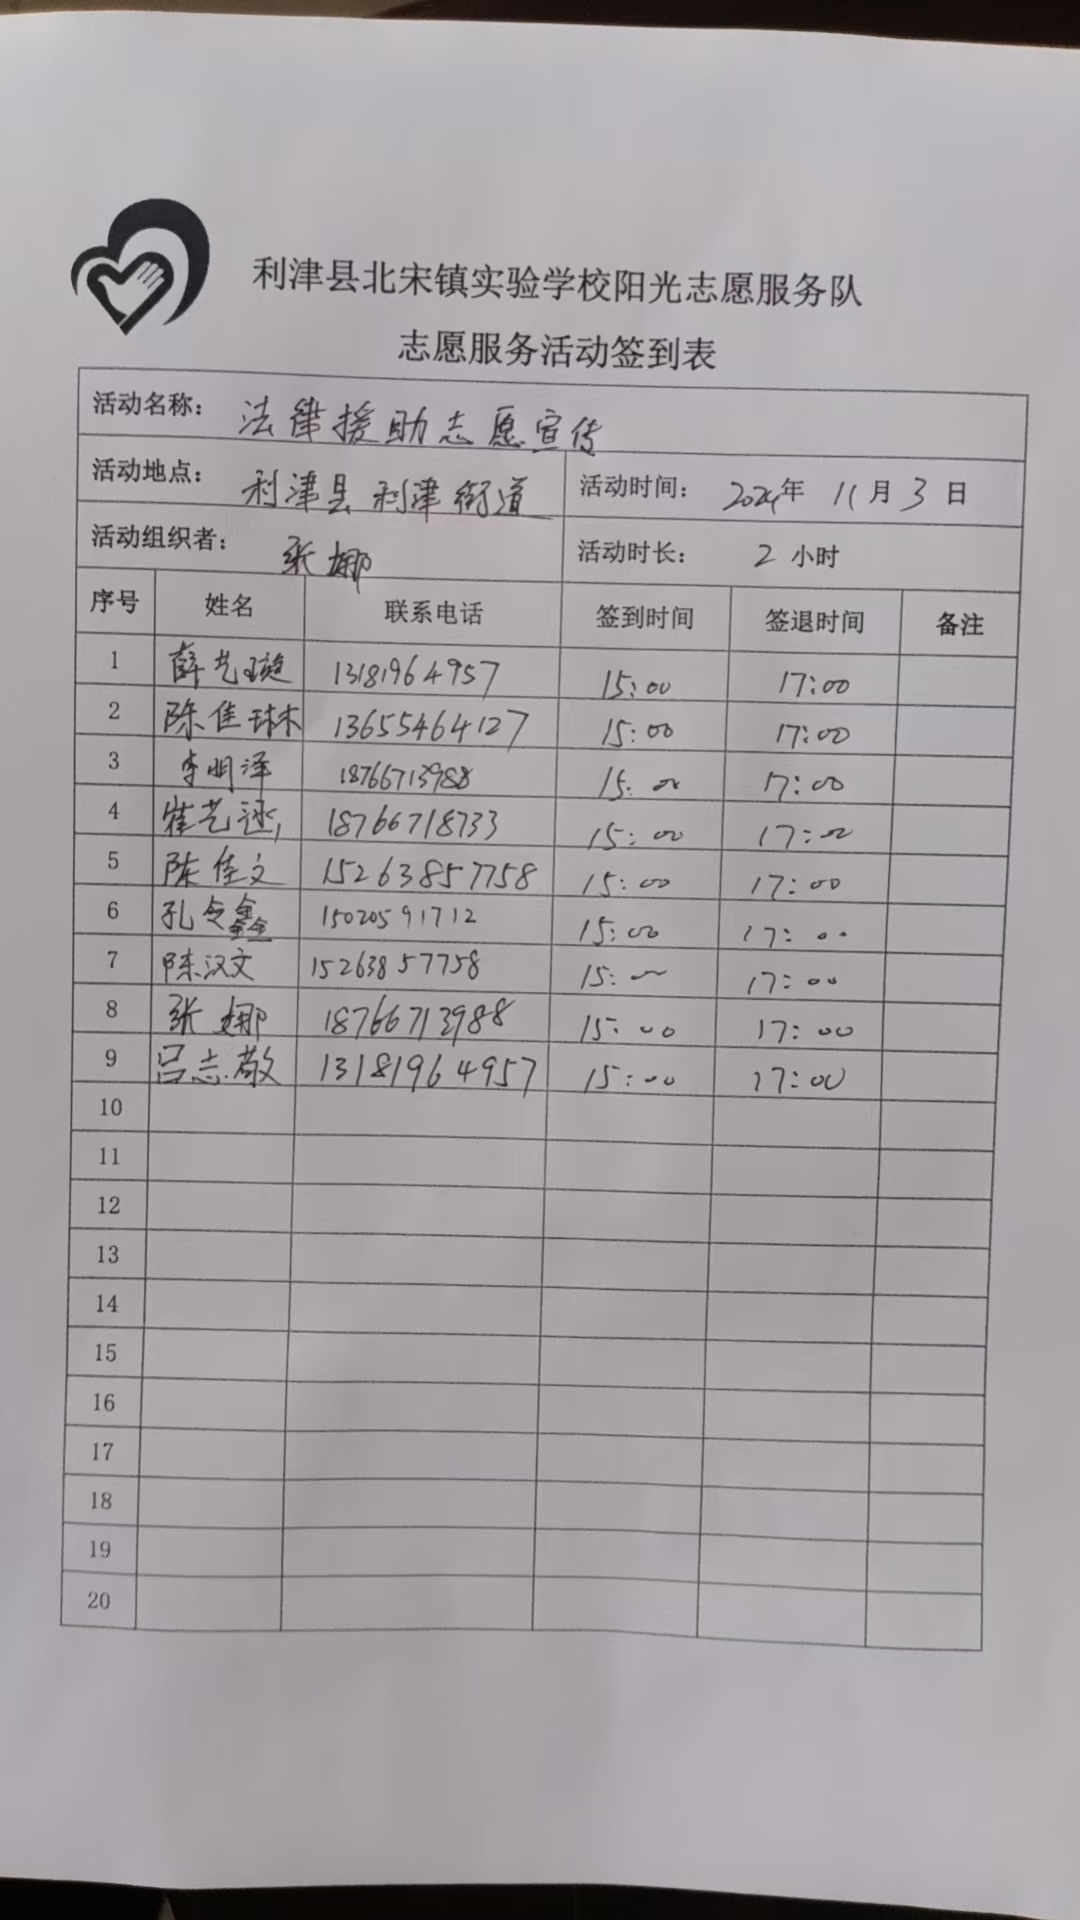 利津县北宋镇实验学校阳光志愿服务队
志愿服务活动签到表
活动名称： 法律援助志愿宣传
活动地点： 利津县利津街道 活动时间： 2024年 11月 3日
活动组织者： 张娜 活动时长： 2 小时
序号 姓名 联系电话 签到时间 签退时间 备注
1 薛艺璇 13181964957 15:00 17:00
2 陈佳琳 13655464127 15:00 17:00
3 李明泽 18766713988 15:00 17:00
4 崔艺 18766718733 15:00 17:00
5 陈佳文 15263857758 15:00 17:00
6 孔令鑫 15020591712 15:00 17:00
7 陈汉文 15263857758 15:00 17:00
8 张娜 18766713988 15:00 17:00
9 吕志敬 13181964957 15:00 17:00
10
11
12
13
14
15
16
17
18
19
20